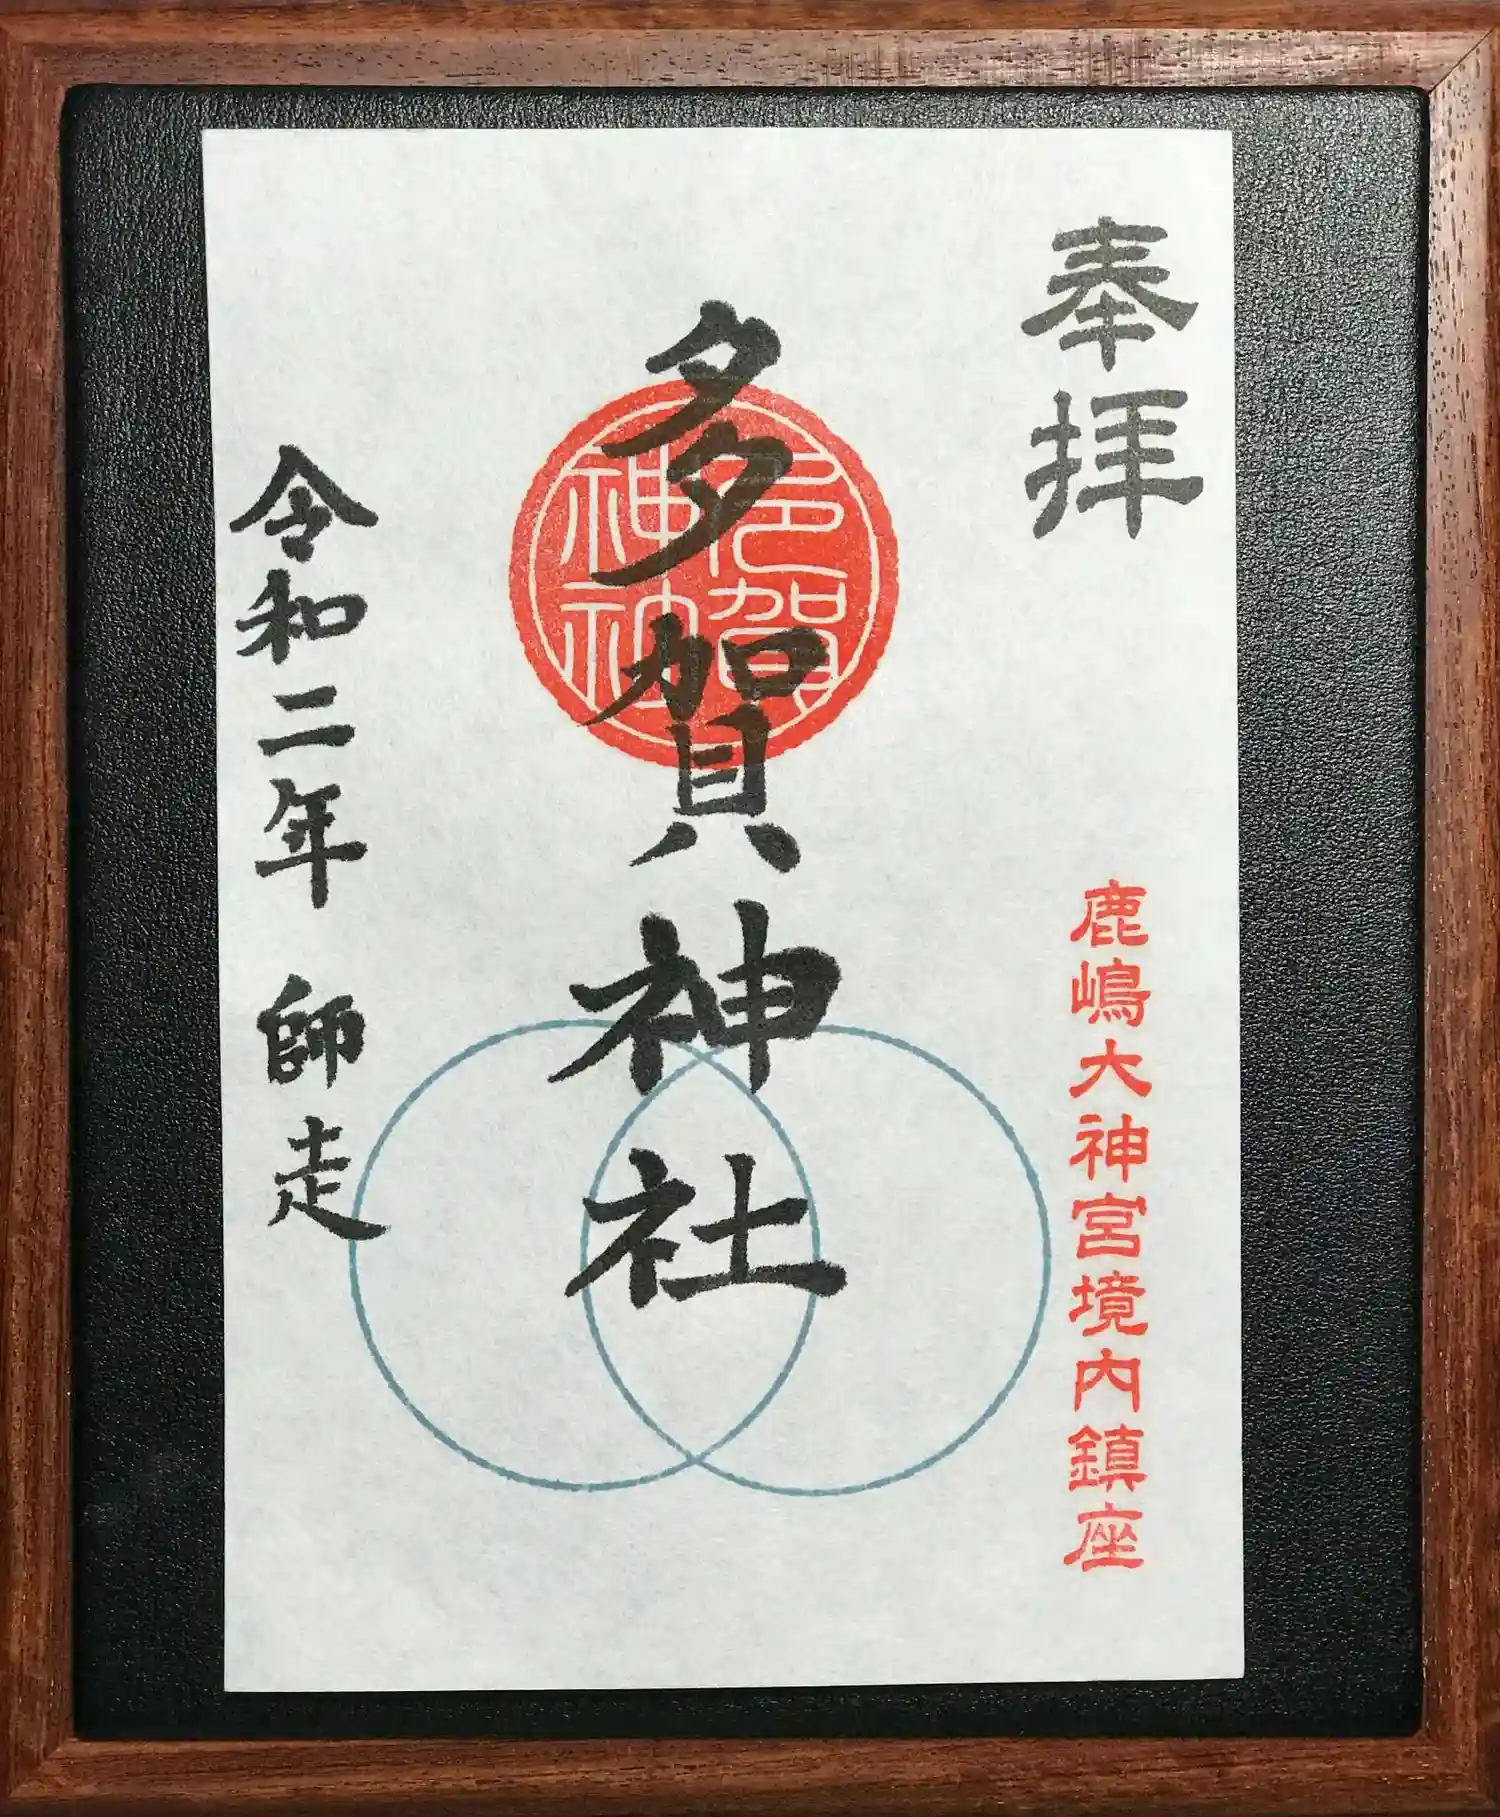 奉拝
鹿嶋大神宮境内鎮座
多賀神社
令和二年 師走